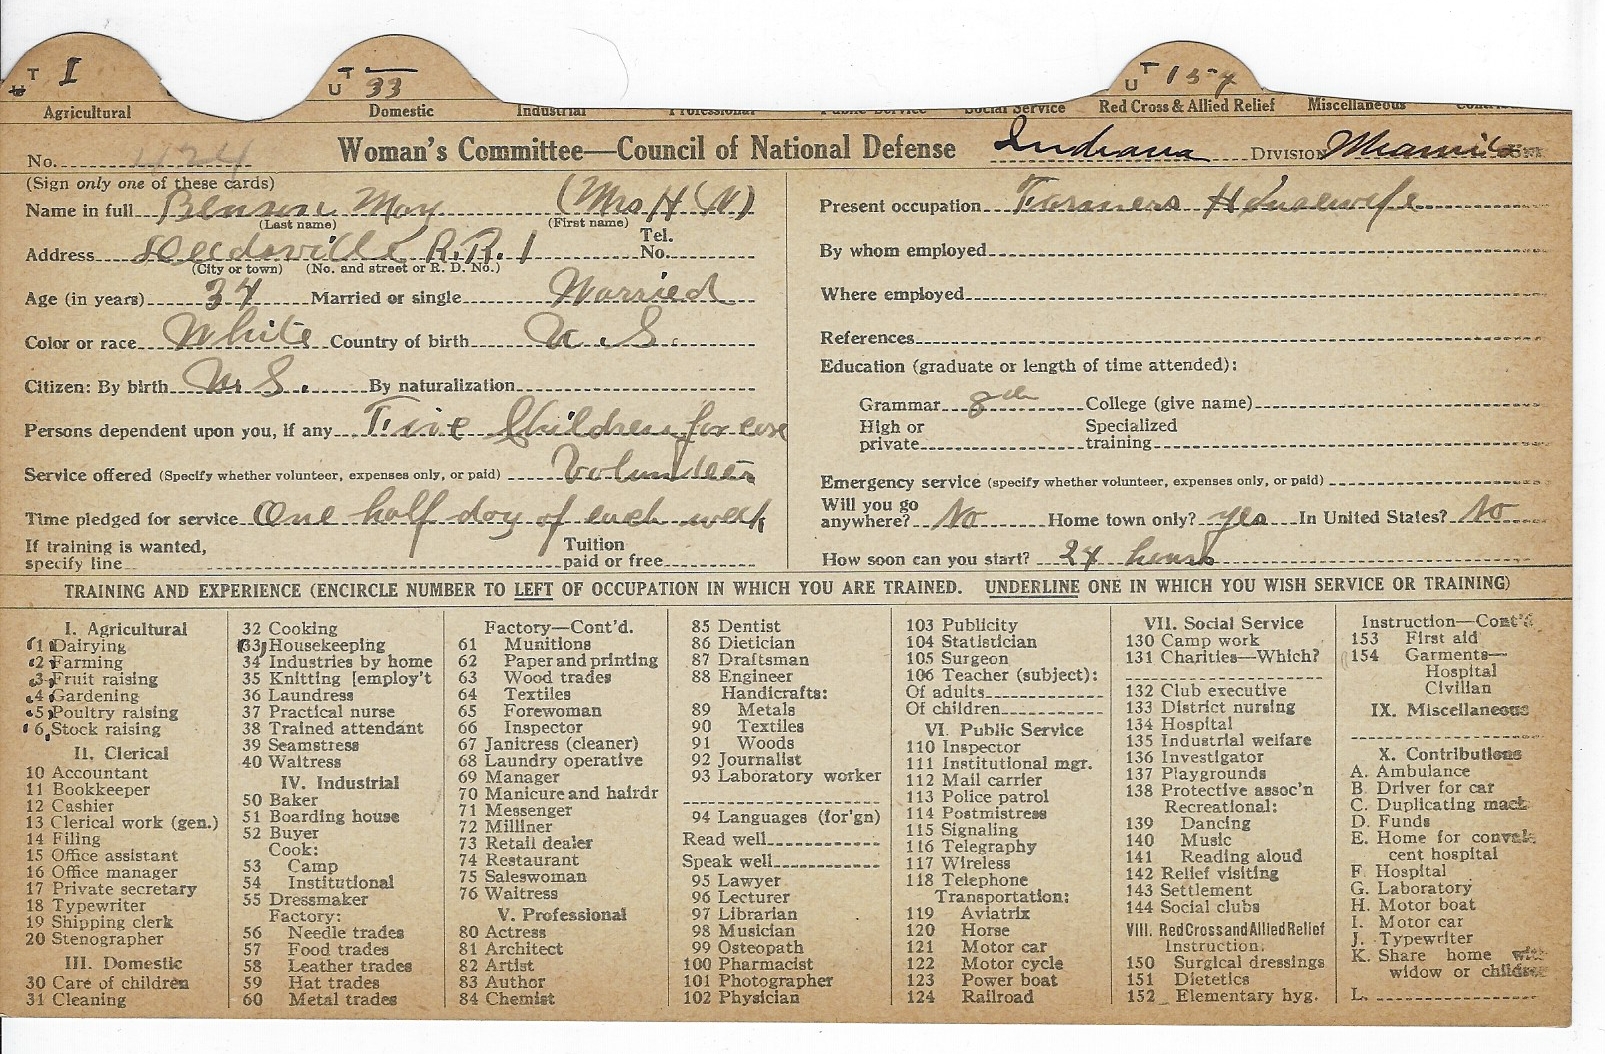 T I T 33 U T 154 U
Agricultural Domestic Industrial Professional Public Service Social Service Red Cross & Allied Relief Miscellaneous
No. 1124 Woman's Committee—Council of National Defense Indiana DIVISION Miami
(Sign only one of these cards)
Name in full Benson May (Mrs H N)
(Last name) (First name)
Address Deedsville R.R. 1 Tel. No.
(City or town) (No. and street or R. D. No.)
Age (in years) 34 Married or single Married
Color or race White Country of birth U. S.
Citizen: By birth U. S. By naturalization
Persons dependent upon you, if any Five Children for care
Service offered (Specify whether volunteer, expenses only, or paid) Volunteer
Time pledged for service One half day of each week
If training is wanted, specify line Tuition paid or free
Present occupation Farmers Housewife
By whom employed
Where employed
References
Education (graduate or length of time attended):
Grammar 8th College (give name)
High or private Specialized training
Emergency service (specify whether volunteer, expenses only, or paid)
Will you go anywhere? No Home town only? yes In United States? No
How soon can you start? 24 hours
TRAINING AND EXPERIENCE (ENCIRCLE NUMBER TO LEFT OF OCCUPATION IN WHICH YOU ARE TRAINED. UNDERLINE ONE IN WHICH YOU WISH SERVICE OR TRAINING)
I. Agricultural
1 Dairying
2 Farming
3 Fruit raising
4 Gardening
5 Poultry raising
6 Stock raising
II. Clerical
10 Accountant
11 Bookkeeper
12 Cashier
13 Clerical work (gen.)
14 Filing
15 Office assistant
16 Office manager
17 Private secretary
18 Typewriter
19 Shipping clerk
20 Stenographer
III. Domestic
30 Care of children
31 Cleaning
32 Cooking
33 Housekeeping
34 Industries by home
35 Knitting [employ't
36 Laundress
37 Practical nurse
38 Trained attendant
39 Seamstress
40 Waitress
IV. Industrial
50 Baker
51 Boarding house
52 Buyer
Cook:
53 Camp
54 Institutional
55 Dressmaker
Factory:
56 Needle trades
57 Food trades
58 Leather trades
59 Hat trades
60 Metal trades
Factory—Cont'd.
61 Munitions
62 Paper and printing
63 Wood trades
64 Textiles
65 Forewoman
66 Inspector
67 Janitress (cleaner)
68 Laundry operative
69 Manager
70 Manicure and hairdr
71 Messenger
72 Milliner
73 Retail dealer
74 Restaurant
75 Saleswoman
76 Waitress
V. Professional
80 Actress
81 Architect
82 Artist
83 Author
84 Chemist
85 Dentist
86 Dietician
87 Draftsman
88 Engineer
Handicrafts:
89 Metals
90 Textiles
91 Woods
92 Journalist
93 Laboratory worker
94 Languages (for'gn)
Read well
Speak well
95 Lawyer
96 Lecturer
97 Librarian
98 Musician
99 Osteopath
100 Pharmacist
101 Photographer
102 Physician
103 Publicity
104 Statistician
105 Surgeon
106 Teacher (subject):
Of adults
Of children
VI. Public Service
110 Inspector
111 Institutional mgr.
112 Mail carrier
113 Police patrol
114 Postmistress
115 Signaling
116 Telegraphy
117 Wireless
118 Telephone
Transportation:
119 Aviatrix
120 Horse
121 Motor car
122 Motor cycle
123 Power boat
124 Railroad
VII. Social Service
130 Camp work
131 Charities—Which?
132 Club executive
133 District nursing
134 Hospital
135 Industrial welfare
136 Investigator
137 Playgrounds
138 Protective assoc'n
Recreational:
139 Dancing
140 Music
141 Reading aloud
142 Relief visiting
143 Settlement
144 Social clubs
VIII. Red Cross and Allied Relief
Instruction:
150 Surgical dressings
151 Dietetics
152 Elementary hyg.
Instruction—Cont'd.
153 First aid
154 Garments—
Hospital
Civilian
IX. Miscellaneous
X. Contributions
A. Ambulance
B. Driver for car
C. Duplicating mach
D. Funds
E. Home for convales
cent hospital
F. Hospital
G. Laboratory
H. Motor boat
I. Motor car
J. Typewriter
K. Share home with
widow or children
L.